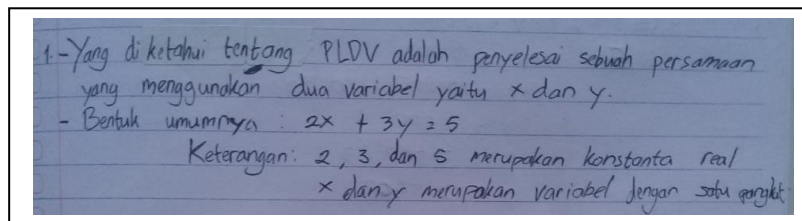 1. - Yang diketahui tentang PLDV adalah penyelesai sebuah persamaan
yang menggunakan dua variabel yaitu x dan y.
- Bentuk umumnya : 2x + 3y = 5
Keterangan : 2, 3, dan 5 merupakan konstanta real
x dan y merupakan variabel dengan satu pangkat